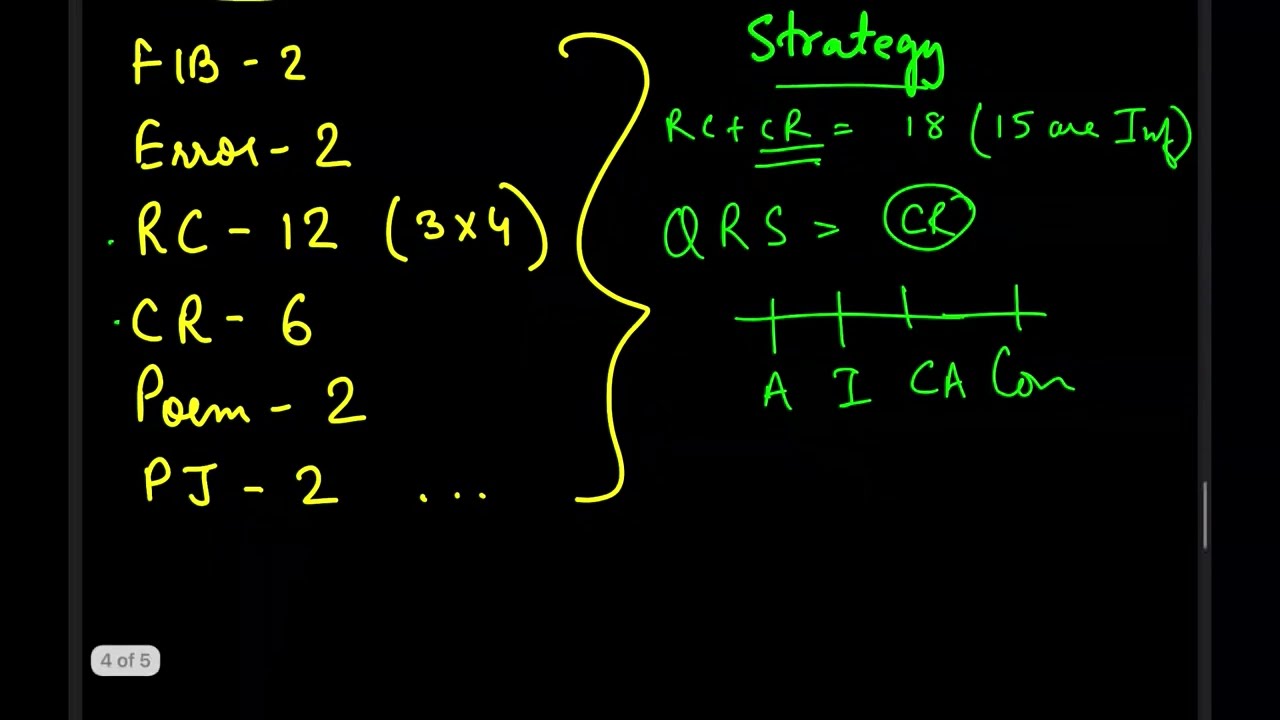 FIB - 2
Error - 2
. RC - 12 (3x4)
. CR - 6
Poem - 2
PJ - 2 ...
Strategy
RC + CR = 18 (15 are Inf)
QRS > CR
A I CA Con
4 of 5